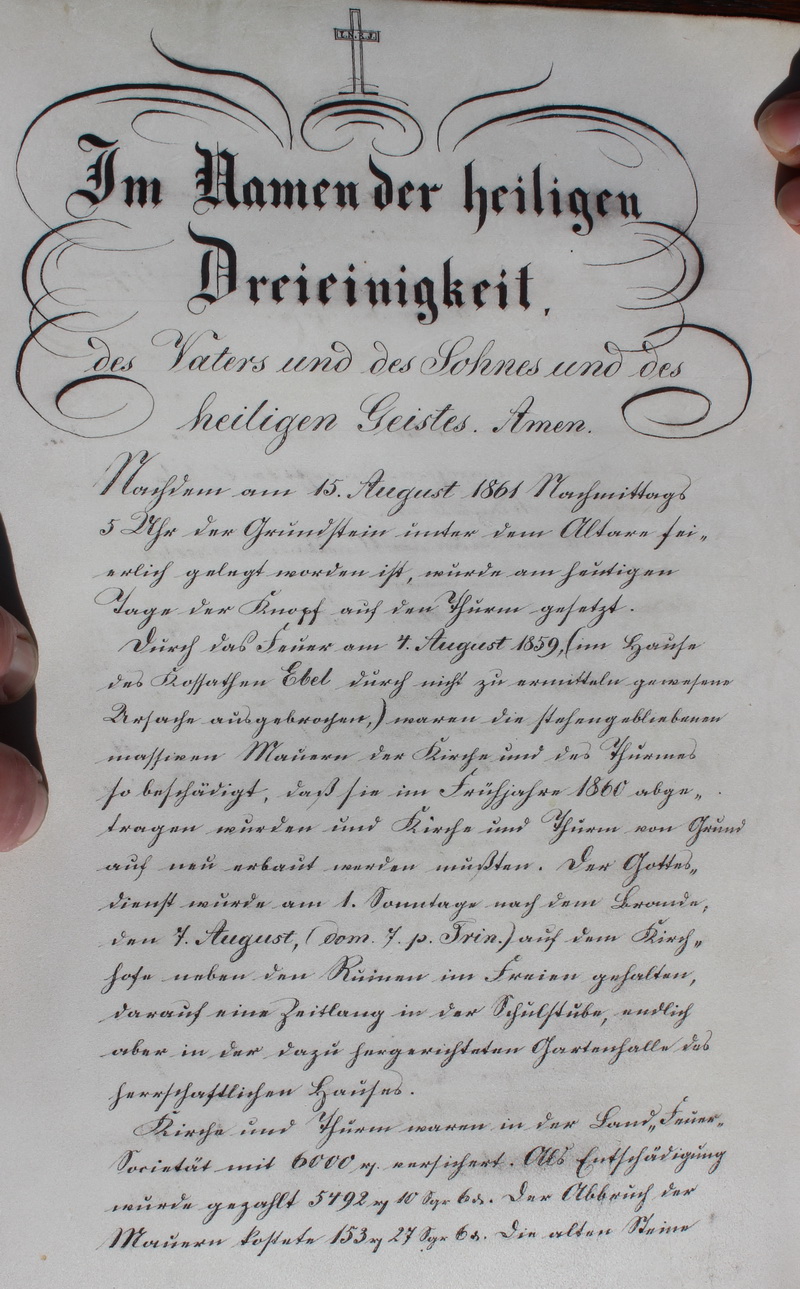 I.N.R.I.
Im Namen der heiligen
Dreieinigkeit,
des Vaters und des Sohnes und des
heiligen Geistes. Amen.
Nachdem am 15. August 1861 Nachmittags
5 Uhr der Grundstein unter dem Altare fei„
erlich gelegt worden ist, wurde am heutigen
Tage der Knopf auf den Thurm gesetzt.
Durch das Feuer am 4. August 1859, (im Hause
des Kossathen Ebel durch nicht zu ermitteln gewesene
Ursache ausgebrochen,) waren die stehengebliebenen
massiven Mauern der Kirche und des Thurmes
so beschädigt, daß sie im Frühjahre 1860 abge„
tragen wurden und Kirche und Thurm von Grund
auf neu erbaut werden mußten. Der Gottes„
dienst wurde am 1. Sonntage nach dem Brande,
den 7. August, (dom. 7. p. Trin.) auf dem Kirch„
hofe neben den Ruinen im Freien gehalten,
darauf eine Zeitlang in der Schulstube, endlich
aber in der dazu hergerichteten Gartenhalle des
herrschaftlichen Hauses.
Kirche und Thurm waren in der Land„Feuer„
Societät mit 6000 rℓ. versichert. Als Entschädigung
wurde gezahlt 5492 rℓ 10 Sgr 6 δ. Der Abbruch der
Mauern kostete 153 rℓ 27 Sgr 6 δ. Die alten Steine